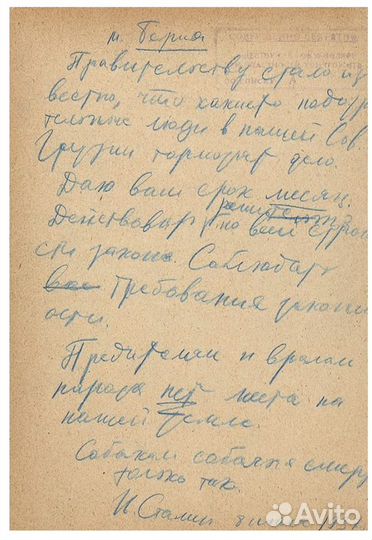 т. Берия
Правительству стало из
вестно, что какието подозри
тельные люди в нашей Сов.
Грузии тормозят дело.
Даю вам срок месяц.
решительно
Действовать по всей строго
сти закона. Соблюдать
все требования законн
ости.
Предителям и врагам
народа нет места на
нашей земле.
Собакам собачья смерть
только так.
И Сталин 8
Avito